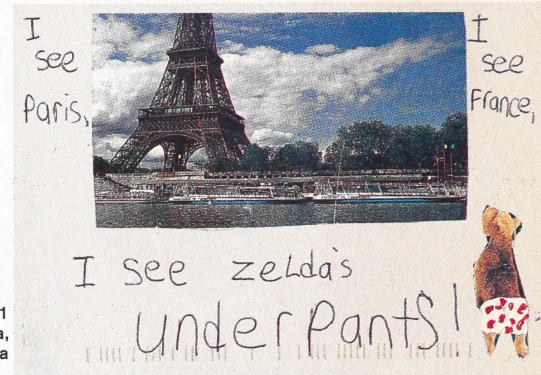 I
see
Paris,
I
see
France,
I see zelda's
underpants!
1
a,
a